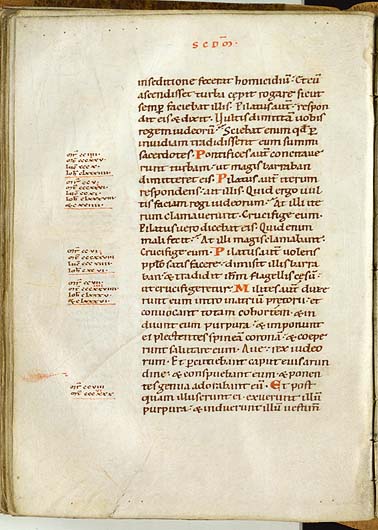 SCDM
inseditione fecerat homicidiū. Et cū
ascendisset turba cepit rogare sicut
semp faciebat illis. Pilatus aut respon
dit eis & dixit. Uultis dimittā uobis
regem iudeorū. Sciebat enim qd per
inuidiam tradidissent eum summi
sacerdotes. Pontifices aut concitaue
runt turbam. ut magis barraban
dimitteret eis. Pilatus aut iterum
respondens. ait illis. Quid ergo uul
tis faciam regi iudeorum. At illi ite
rum clamauerunt. Crucifige eum.
Pilatus uero dicebat eis. Quid enim
mali fecit. At illi magis clamabant.
Crucifige eum. Pilatus aut uolens
pplo satis facere. dimisit illis barra
ban. & tradidit ihm flagellis cesū.
ut crucifigeretur. Milites aut duxe
runt eum intro atriū pretorii. et
conuocant totam cohortem. & in
duunt eum purpura. & imponunt
ei plectentes spineā coronā. & coepe
runt salutare eum. Aue. rex iudeo
rum. Et percutiebant caput eius arun
dine. & conspuebant eum. & ponen
tes genua adorabant eū. Et post
quam illuserunt ei. exuerunt illū
purpura. & induerunt illū uestim